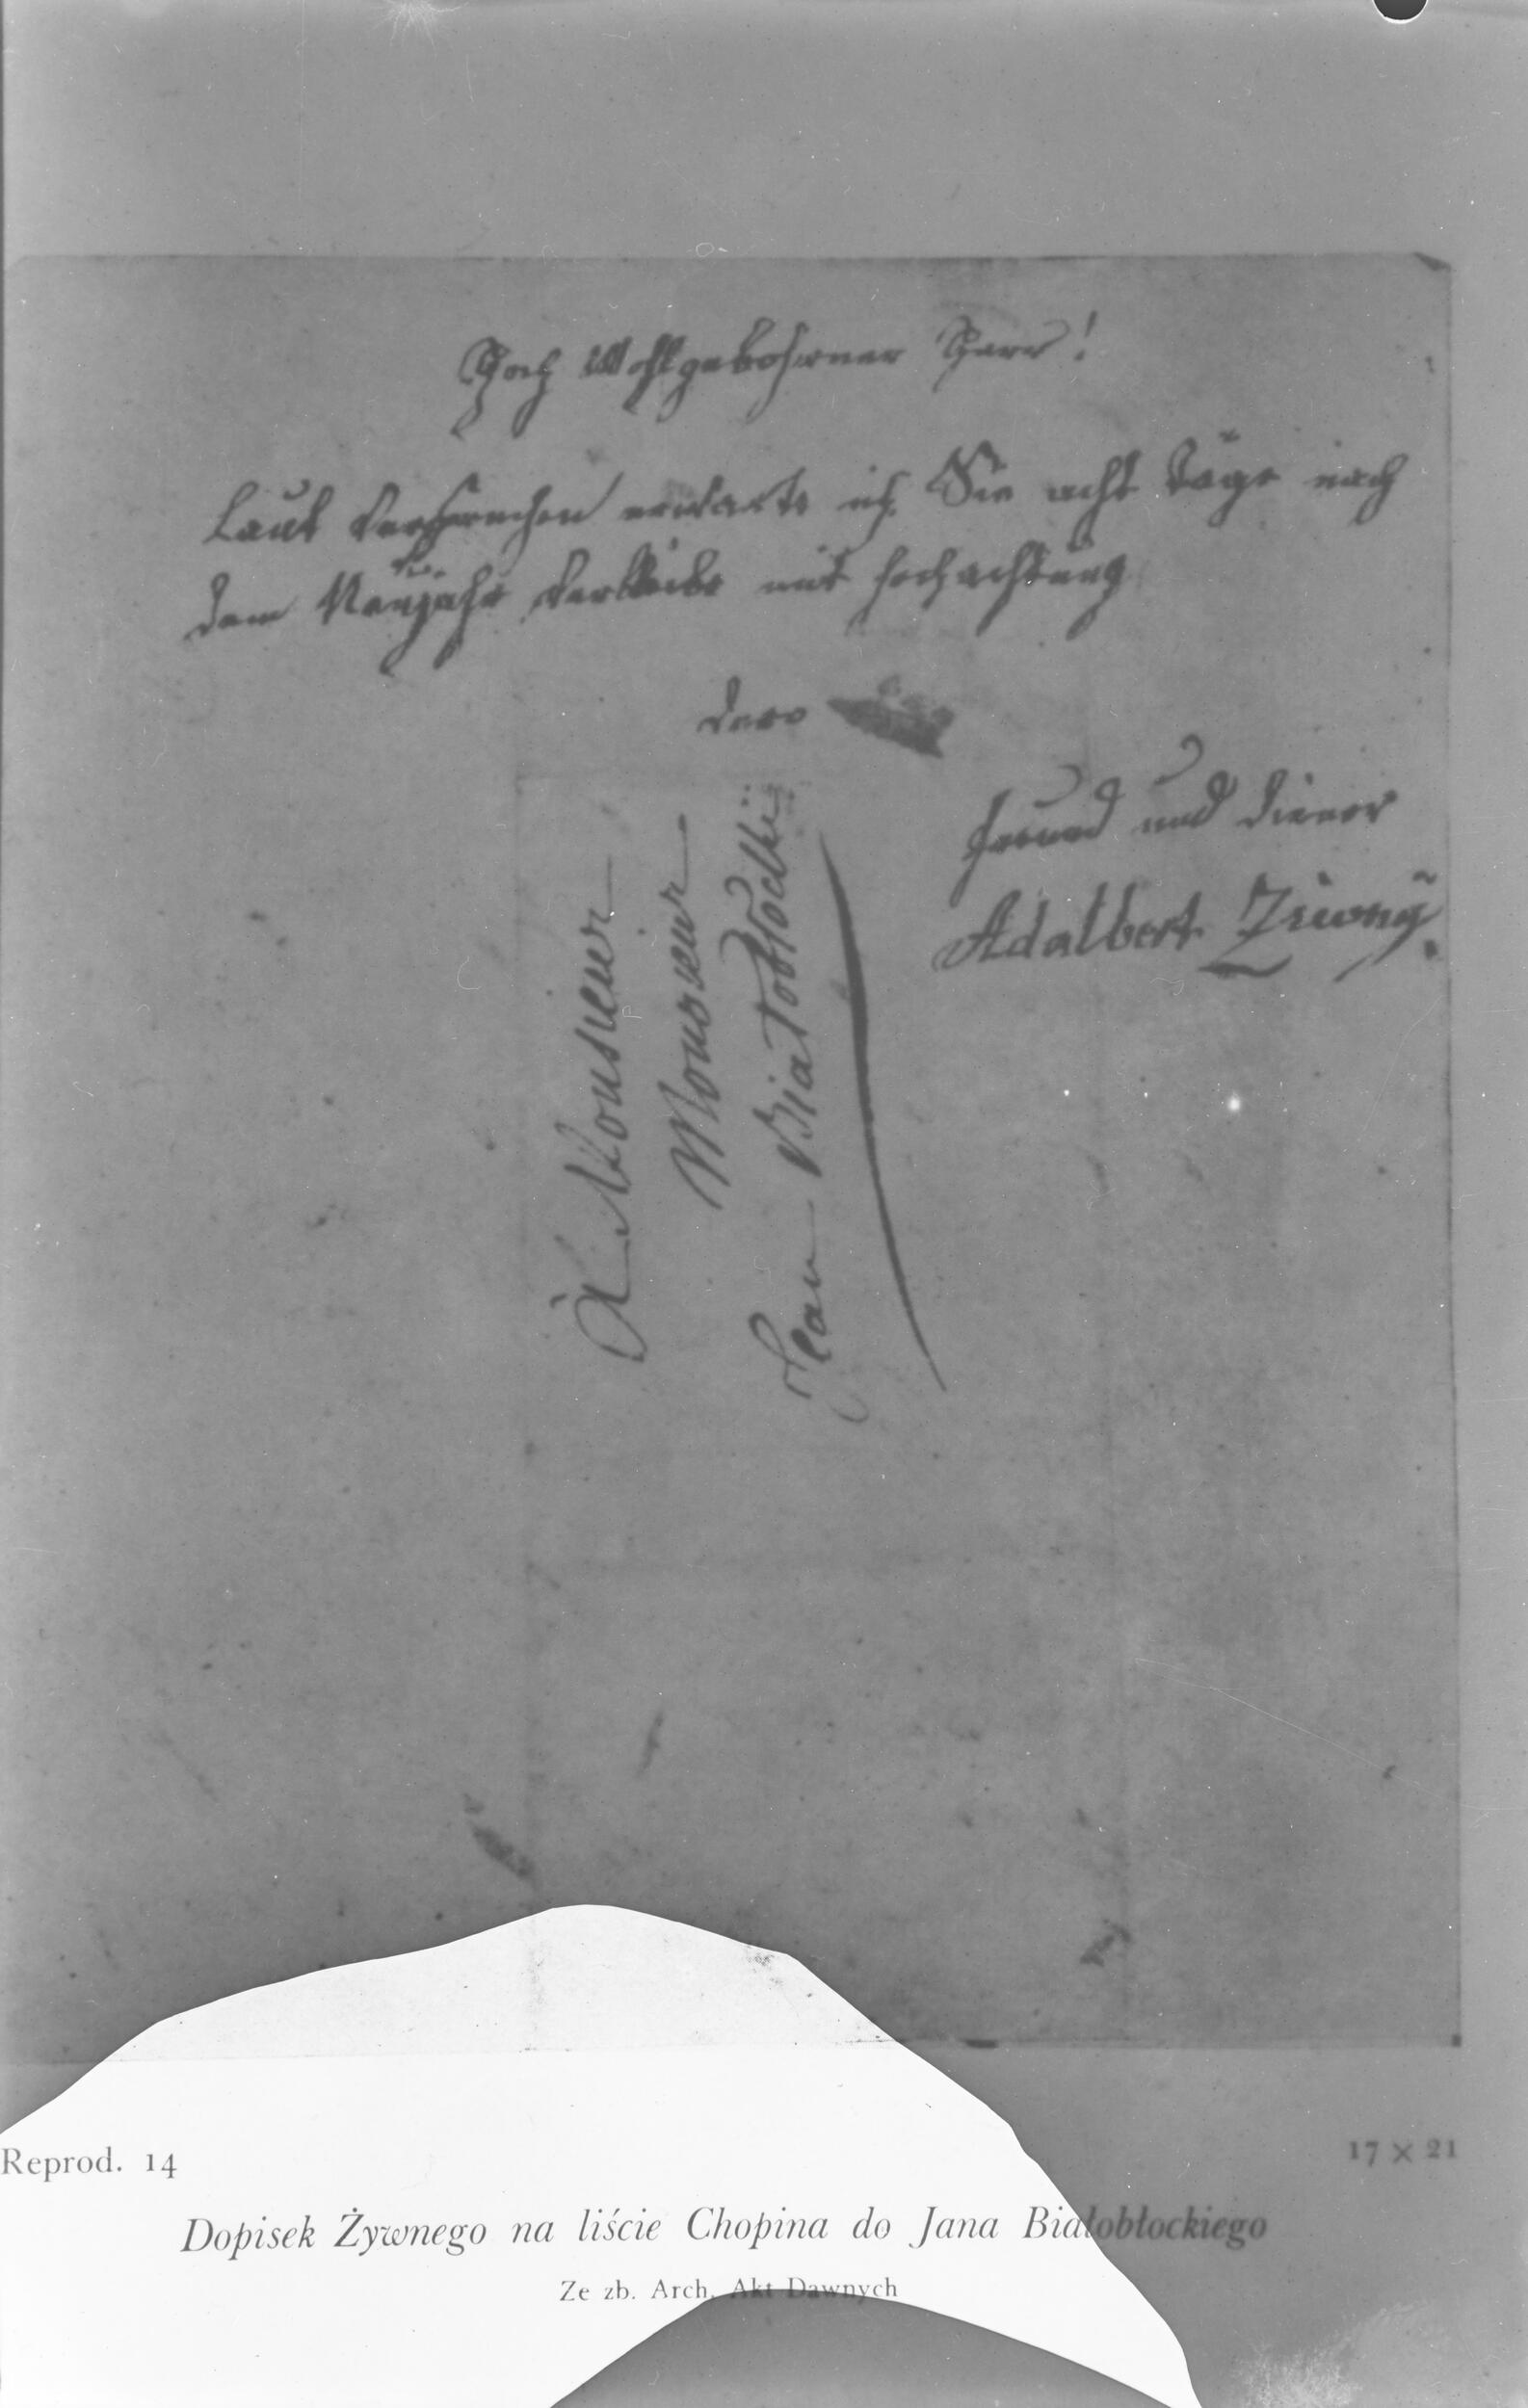 Hoch Wohlgebohrner Herr!
Laut Versprechen erwarte ich Sie acht Täge nach
dem Neujahr verbleibe mit Hochachtung
dero
Freund und Diener
Adalbert Ziwny
à Monsieur
Monsieur
Jean Białobłocki
Reprod. 14
17 × 21
Dopisek Żywnego na liście Chopina do Jana Białobłockiego
Ze zb. Arch. Akt Dawnych